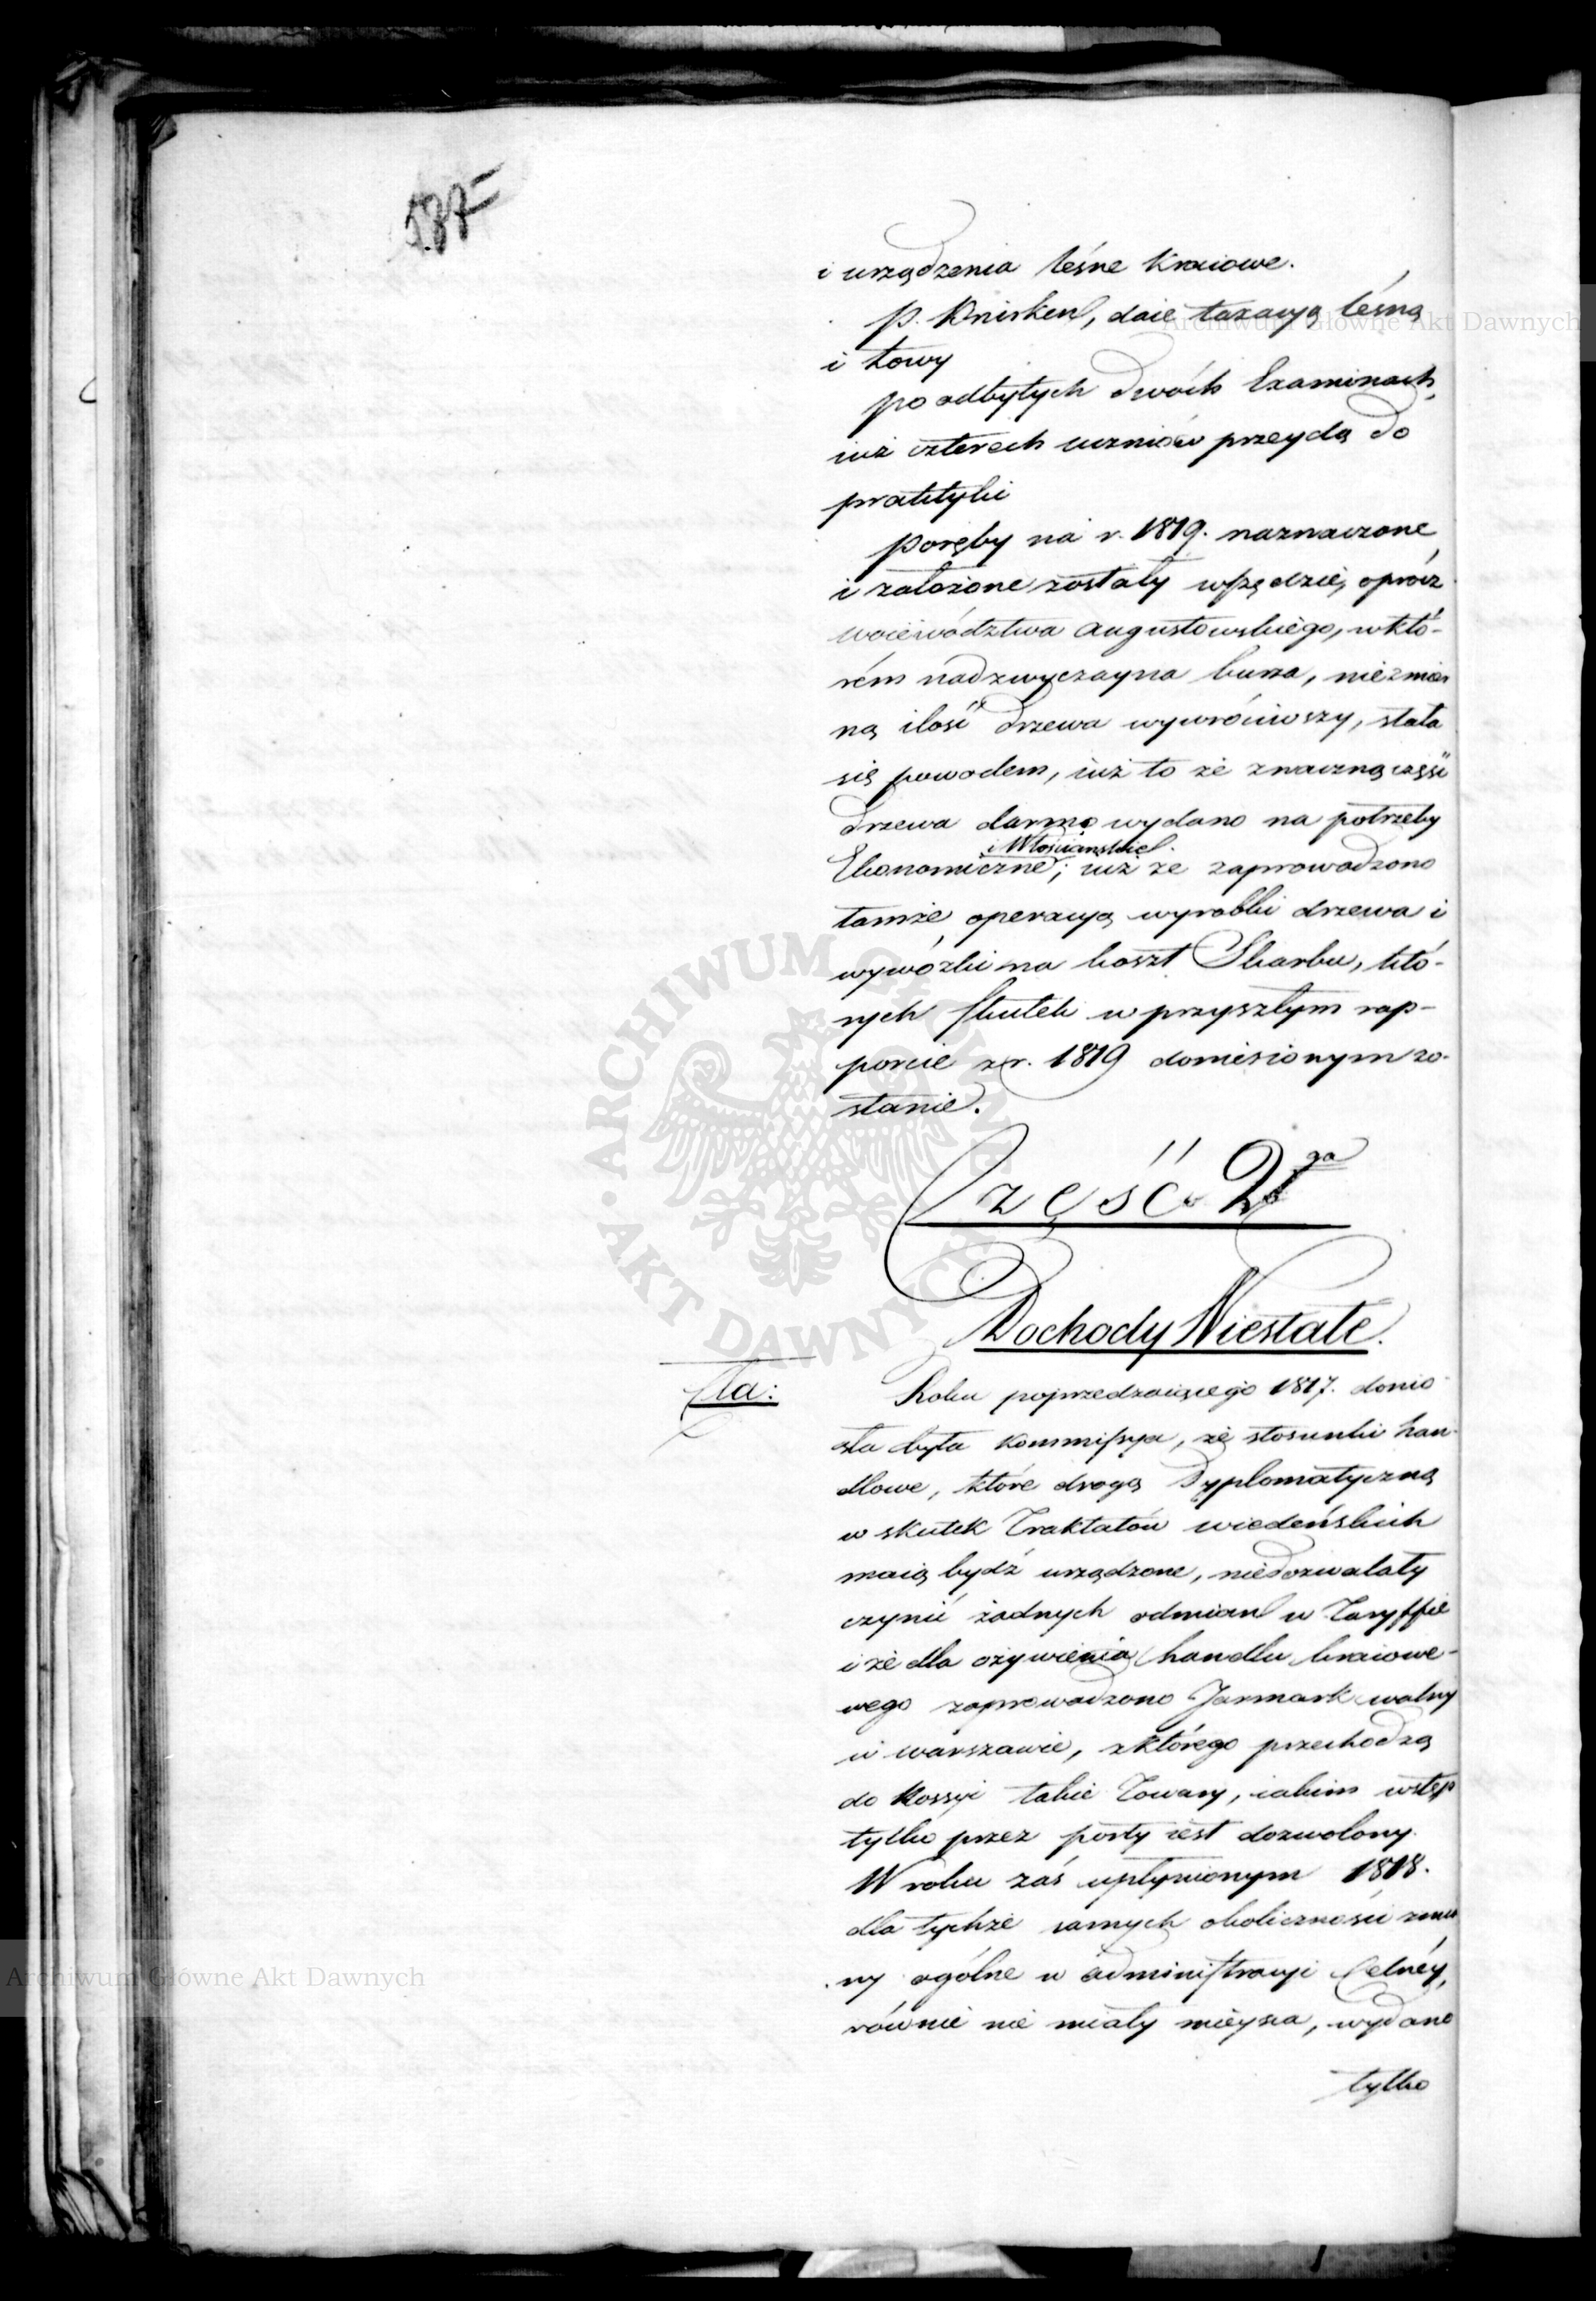 187
i urządzenia leśne kraiowe.
P. Knirken, daie taxacyą leśną
i Łowy
po odbytych dwóch Examinach,
iuż czterech uczniów przeydą do
praktyki
Poręby na r. 1819. naznaczone
i założone zostały wszędzie, oprócz
Woiewództwa Augustowskiego, w któ-
rém nadzwyczayna burza, niezmier
ną ilość drzewa wywróciwszy, stała
się powodem, iuż to że znaczną część
drzewa darmo wydano na potrzeby
i Włościańskie
Ekonomiczne; iuż że zaprowadzono
tamże operacyą wyrobki drzewa i
wywózki na koszt Skarbu, któ-
rych skutek w przyszłym rap-
porcie z r. 1819 doniesionym zo-
stanie.
Część 2ga
Dochody Niestałe.
Cła:
Roku poprzedzaiącego 1817. donio-
sła była Kommissya, że stosunki han-
dlowe, które drogą Dyplomatyczną
w skutek Traktatów wiedeńskich
maią bydź urządzone, niedozwalały
czynić żadnych odmian w Taryffie
i że dla ożywienia handlu kraiowe-
wego zaprowadzono Jarmark walny
w Warszawie, z którego przechodzą
do Rossyi takie Towary, iakim wstęp
tylko przez porty iest dozwolony.
W roku zaś upłynionym 1818.
dla tychże samych okoliczności zmia
ny ogólne w administracyi Celnéy,
równie nie miały mieysca, wydane
tylko
Archiwum Główne Akt Dawnych
Archiwum Główne Akt Dawnych
ARCHIWUM GŁÓWNE AKT DAWNYCH